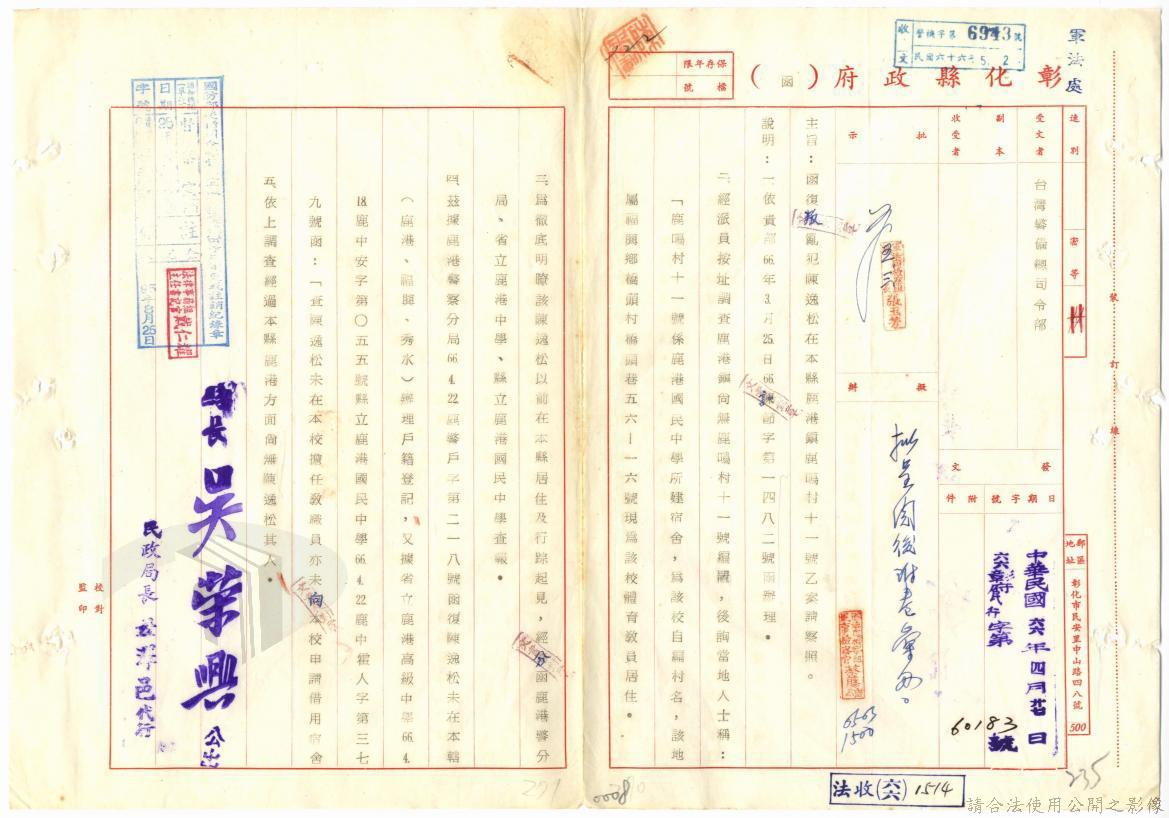 軍法處
收文 警檢字第6943號
民國六十六年5.2
彰化縣政府(函)
保存年限
檔號
速別
密等
受文者 台灣警備總司令部
副本收受者
發文
日期
字號
附件
中華民國六六年四月 日
字第
60183號
郵區地址 彰化市民安里中山路四一八號 500
批示
擬辦
主旨:函復叛亂犯陳逸松在本縣鹿港鎮鹿鳴村十一號乙案請察照。
說明:一、依貴部66年3月25日66諫 字第一四八二號函辦理。
二、經派員按址調查鹿港鎮尚無鹿鳴村十一號編號,後詢當地人士稱:
「鹿鳴村十一號係鹿港國民中學所建宿舍,為該校自編村名,該地
屬福興鄉橋頭村橋頭巷五六-一六號現為該校體育教員居住。
三、為徹底明瞭該陳逸松以前在本縣居住及行踪起見,經分函鹿港警分
局、省立鹿港中學、縣立鹿港國民中學查報。
四、茲據鹿港警察分局66.4.22鹿警戶字第二一八號函復陳逸松未在本轄
(鹿港、福興、秀水)辦理戶籍登記,又據省立鹿港高級中學66.4.
18.鹿中安字第〇五五號縣立鹿港國民中學66.4.22鹿中霍人字第三七
九號函:「查陳逸松未在本校擔任教職員亦未向本校申請借用宿舍
五、依上調查經過本縣鹿港方面尚無陳逸松其人。
縣長 吳榮興 公出
民政局長 代行
校對
監印
裝訂線
法收(六六)1514
235
請合法使用公開之影像